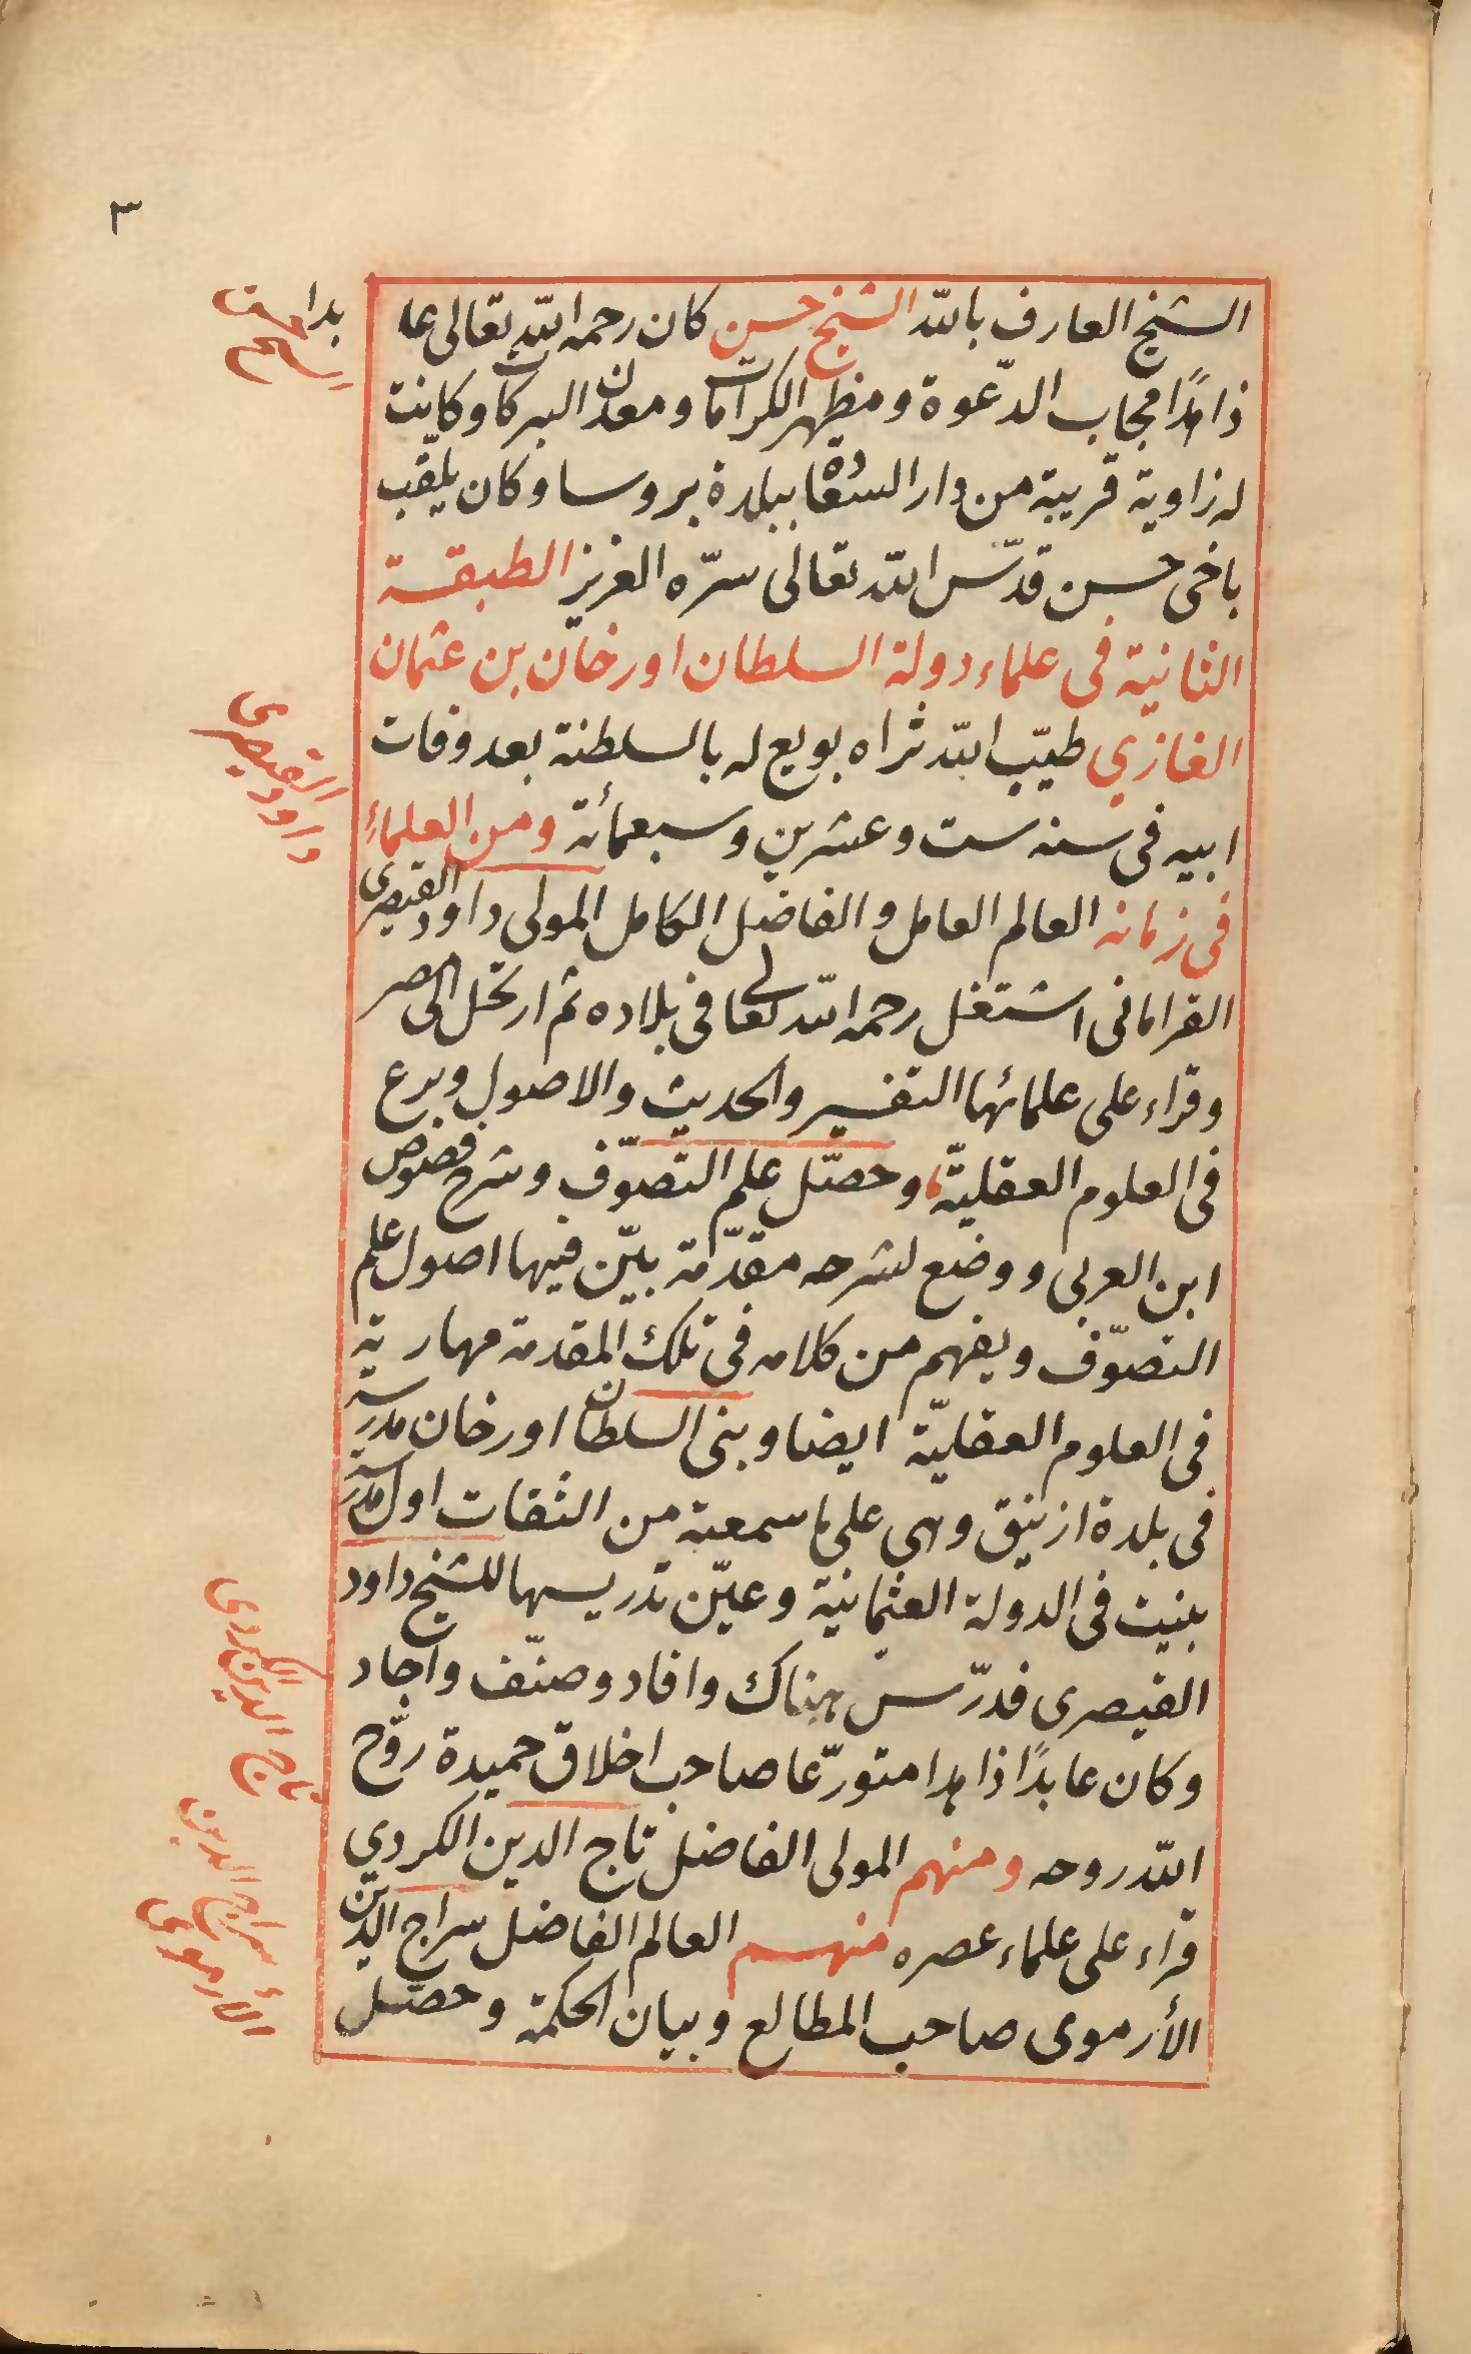 ٣
الشيخ العارف بالله الشيخ حسن كان رحمه الله تعالى عا
بدا
ذاهدًا مجاب الدّعوة ومظهر الكرامات ومعدن البركات وكانت
له زاوية قريبة من دار السعادة ببلدة بروسا وكان يلقّب
باخى حسن قدّس الله تعالى سرّه العزيز الطبقة
الثانية فى علماء دولة السلطان اورخان بن عثمان
الغازي طيّب الله ثراه بويع له بالسلطنة بعد وفات
ابيه فى سنه ست وعشرين وسبعمأئة ومن العلماء
فى زمانه العالم العامل والفاضل الكامل المولى داود القيصرى
داود القيصرى
القرامانى اشتغل رحمه الله تعالى فى بلاده ثم ارتحل الى مصر
وقراء على علمائها التفسير والحديث والاصول وبرع
فى العلوم العقليّة وحصّل علم التصوّف وشرح فصوص
ابن العربى ووضع لشرحه مقدّمة بيّن فيها اصول علم
التصوّف ويفهم من كلامه فى تلك المقدمة مهارته
فى العلوم العقليّة ايضا وبنى السلطان اورخان مدرسة
فى بلدة ازنيق وهى على ما سمعته من الثقات اول مدرسة
بنيت فى الدولة العثمانية وعيّن تدريسها للشيخ داود
القيصرى فدرّس هناك وافاد وصنّف واجاد
وكان عابدًا ذاهدا متورّعا صاحب اخلاق حميدة روّح
الله روحه ومنهم المولى الفاضل تاج الدين الكردي
تاج الدين الكردى
قراء على علماء عصره منهم العالم الفاضل سراج الدين
سراج الدين
الأرموى
الأرموى صاحب المطالع وبيان الحكمة وحصّل